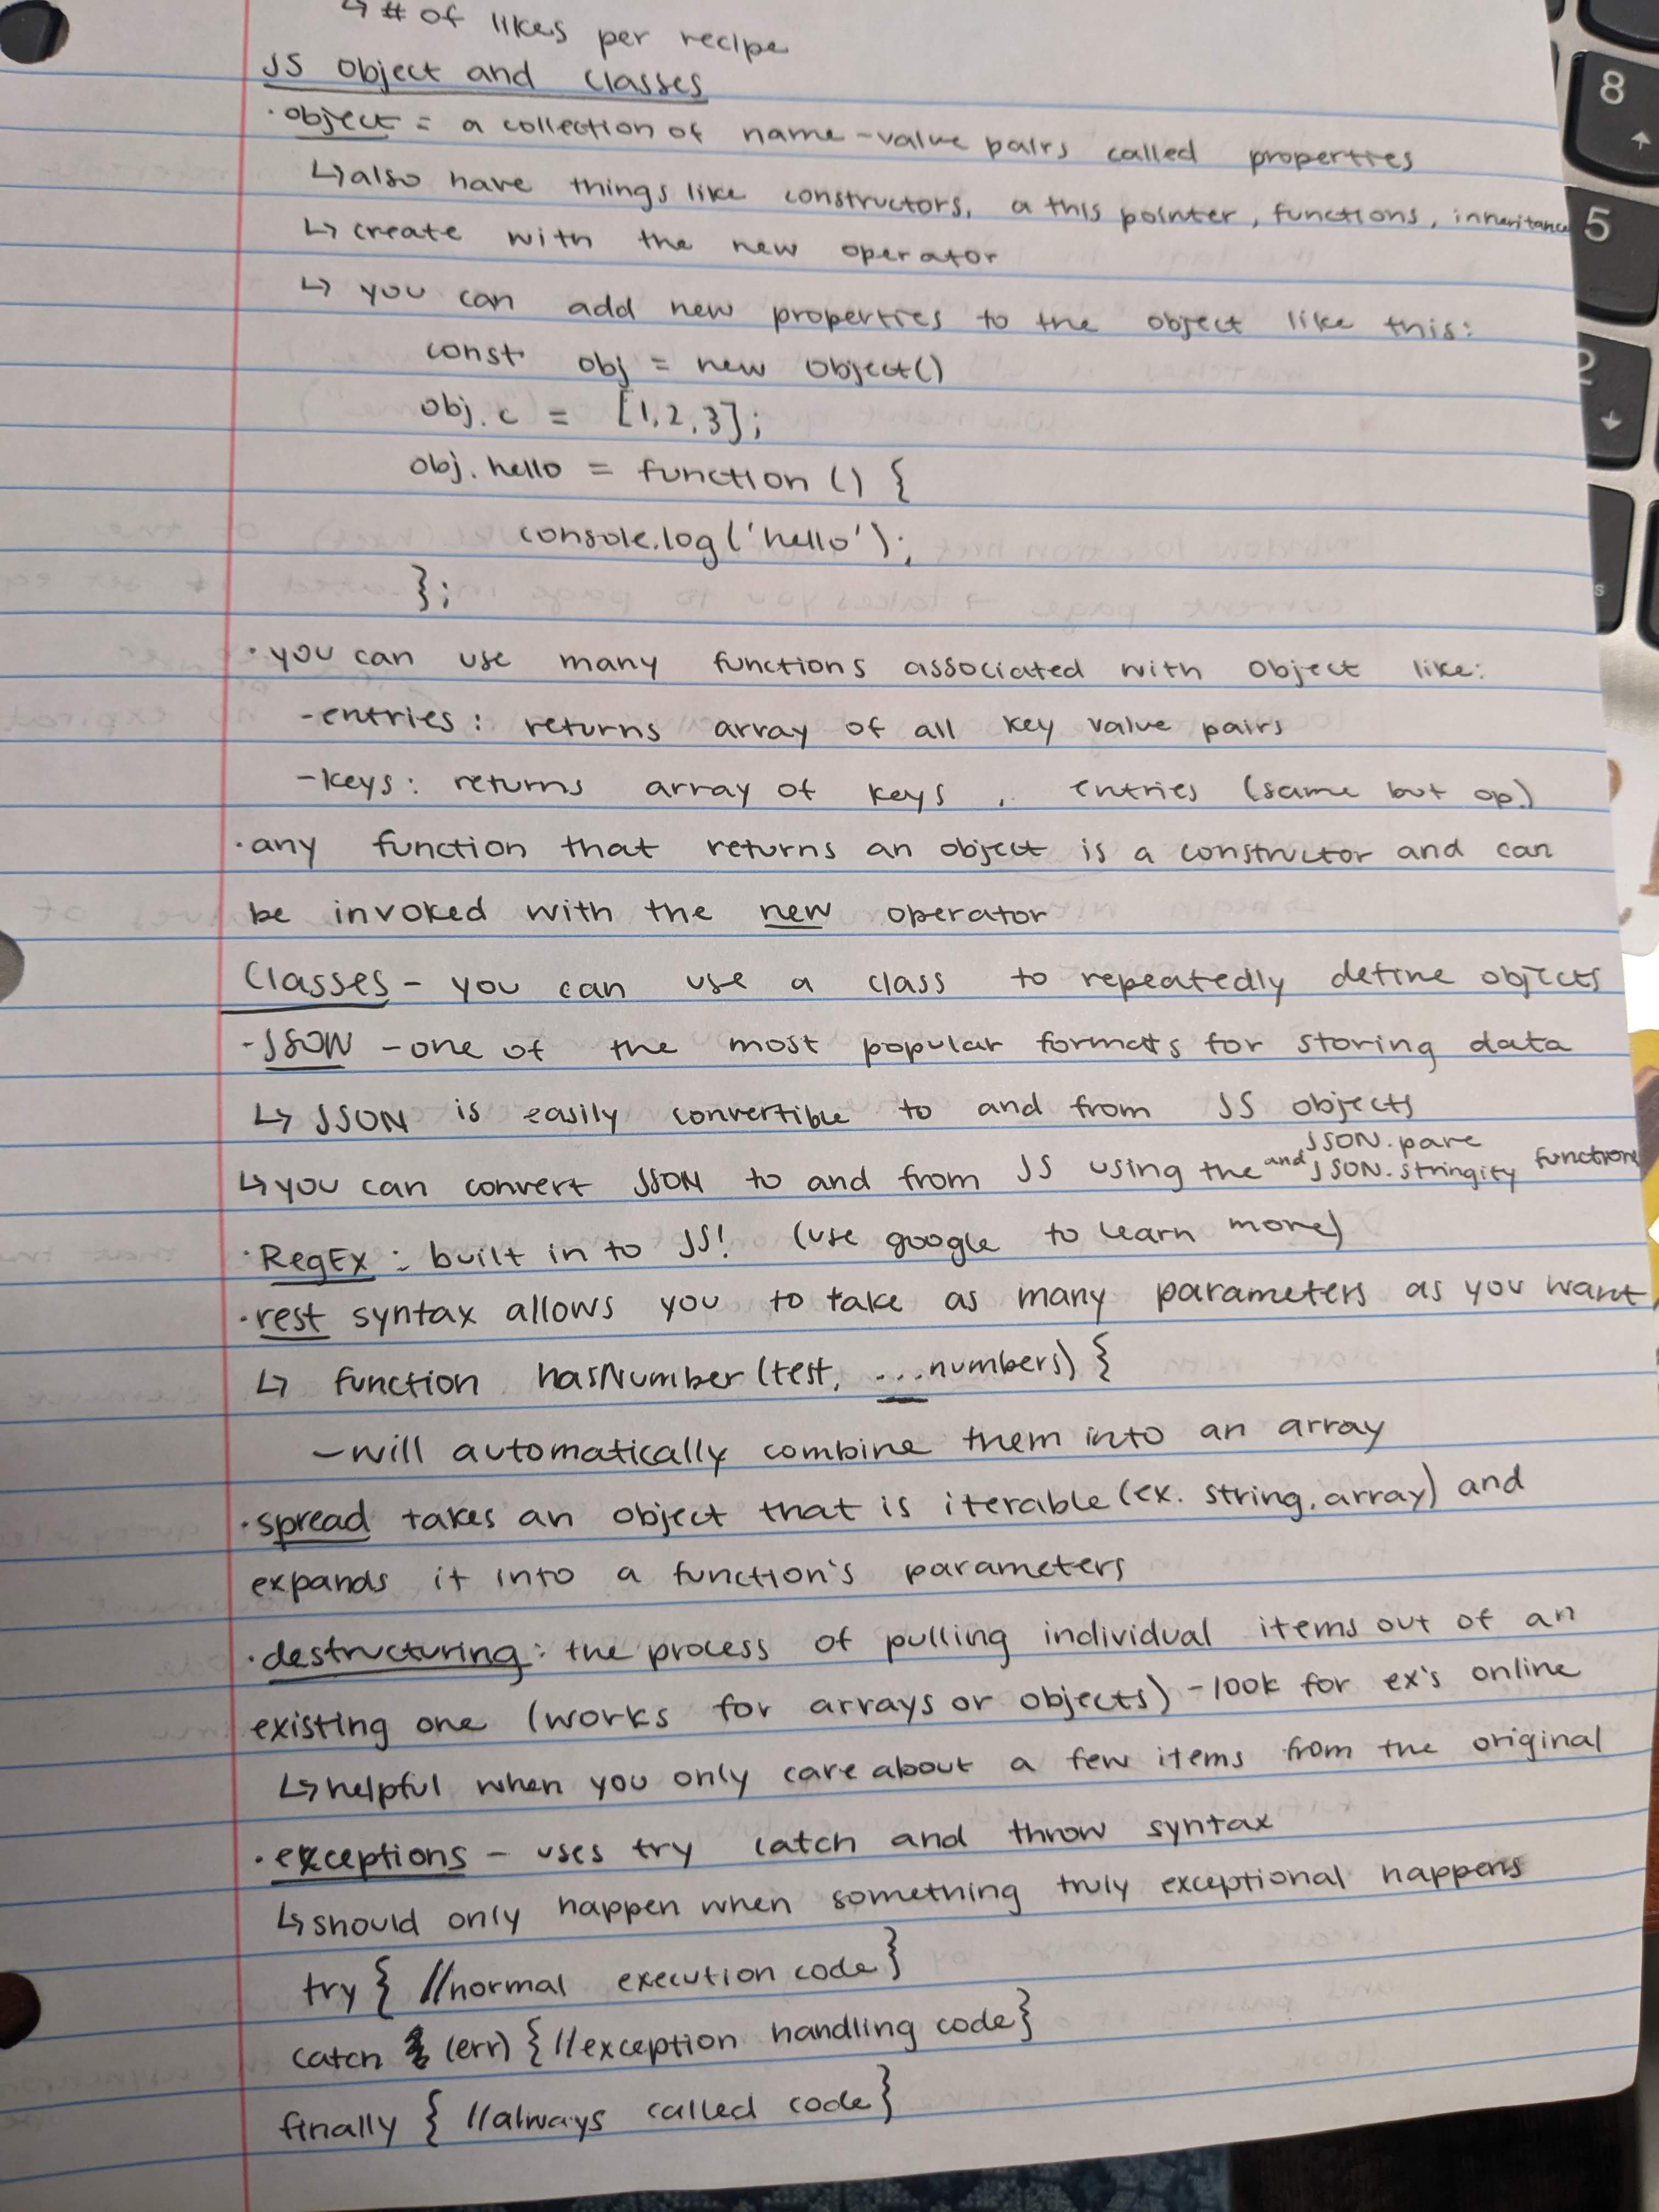 ↳ # of likes per recipe
JS Object and Classes
· object = a collection of name-value pairs called properties
↳ also have things like constructors, a this pointer, functions, inheritance
↳ create with the new operator
↳ you can add new properties to the object like this:
const obj = new Object()
obj.c = [1,2,3];
obj.hello = function () {
console.log('hello');
};
· you can use many functions associated with object like:
- entries: returns array of all key value pairs
- keys: returns array of keys, entries (same but op.)
· any function that returns an object is a constructor and can
be invoked with the new operator
Classes - you can use a class to repeatedly define objects
- JSON - one of the most popular formats for storing data
↳ JSON is easily convertible to and from JS objects
↳ you can convert JSON to and from JS using the JSON.pare and JSON.stringify functions
· RegEx: built in to JS! (use google to learn more)
· rest syntax allows you to take as many parameters as you want
↳ function hasNumber(test, ...numbers) {
- will automatically combine them into an array
· spread takes an object that is iterable (ex. string, array) and
expands it into a function's parameters
· destructuring: the process of pulling individual items out of an
existing one (works for arrays or objects) - look for ex's online
↳ helpful when you only care about a few items from the original
· exceptions - uses try catch and throw syntax
↳ should only happen when something truly exceptional happens
try { //normal execution code}
catch (err) { //exception handling code}
finally { //always called code}
8
5
2